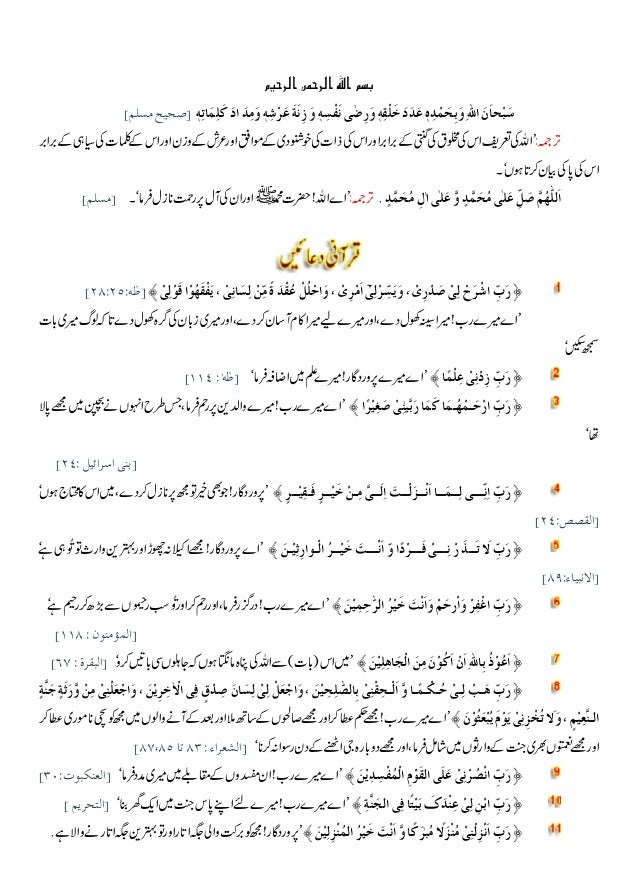 بسم الله الرحمن الرحيم
سَبْحاَنَ اللهِ وَبِحَمْدِهٖ عَدَدَ خَلْقِهٖ وَرِضٰى نَفْسِهٖ وَ زِنَةَ عَرْشِهٖ وَمِدَ ادَ كَلِمَاتِهٖ [صحیح مسلم]
ترجمہ:’اللہ کی تعریف اس کی مخلوق کی گنتی کے برابر اور اس کی ذات کی خوشنودی کے موافق اور عرش کے وزن اور اس کے کلمات کی سیاہی کے برابر
اس کی پاکی بیان کرتا ہوں‘۔
اَللّٰهُمَّ صَلِّ عَلٰى مُحَمَّدٍ وَّ عَلٰى اٰلِ مُحَمَّدٍ . ترجمہ:’اے اللہ! حضرت محمد ﷺ اور ان کی آل پر رحمت نازل فرما‘۔ [مسلم]
قرآنی دعائیں
1 ﴿ رَبِّ اشْرَحْ لِىْ صَدْرِىْ ، وَيَسِّرْلِىْٓ اَمْرِىْ ، وَاحْلُلْ عُقْدَ ةً مِّنْ لِسَانِىْ ، يَفْقَهُوْا قَوْلِىْ ﴾ [طٰہٰ:۲۵:۲۸]
’اے میرے رب! میرا سینہ کھول دے، اور میرے لیے میرا کام آسان کر دے، اور میری زبان کی گرہ کھول دے تاکہ لوگ میری بات
سمجھ سکیں‘
2 ﴿ رَبِّ زِدْنِىْ عِلْمًا ﴾ ’اے میرے پروردگار! میرے علم میں اضافہ فرما‘ [طٰہٰ : ۱۱٤]
3 ﴿ رَبِّ ارْحَمْهُمَا كَمَا رَبَّيٰنِىْ صَغِيْرًا ﴾ ’اے میرے رب! میرے والدین پر رحم فرما، جس طرح انہوں نے بچپن میں مجھے پالا
تھا‘
[بنی اسرائیل :۲٤]
4 ﴿ رَبِّ اِنِّـىْ لِـمَـا اَنْـزَلْـتَ اِلَـىَّ مِنْ خَيْـرٍ فَـقِيْـرٍ ﴾ ’پروردگار! جو بھی خیر تو مجھ پر نازل کر دے، میں اس کا محتاج ہوں‘
[القصص:۲٤]
5 ﴿ رَبِّ لَا تَـذَرْ نِـىْ فَـرْدًا وَ اَنْـتَ خَيْـرُ الْـوارِثِيْـنَ ﴾ ’اے پروردگار! مجھے اکیلا نہ چھوڑ اور بہترین وارث تو تُو ہی ہے‘
[الانبیاء:۸۹]
6 ﴿ رَبِّ اغْفِرْ وَارْحَمْ وَاَنْتَ خَيْرُ الرّٰحِمِيْنَ ﴾ ’اے میرے رب! درگزر فرما، اور رحم کر اور تُو سب رحیموں سے بڑھ کر رحیم ہے‘
[المؤمنون : ۱۱۸]
7 ﴿ اَعُوْذُ بِاللهِ اَنْ اَكُوْنَ مِنَ الْجَاهِلِيْنَ ﴾ ’میں اس (بات) سے اللہ کی پناہ مانگتا ہوں کہ جاہلوں سی باتیں کروں‘ [البقرة : ٦٧]
8 ﴿ رَبِّ هَبْ لِىْ حُكْـمًـا وَّ اَلْـحِقْنِىْ بِالصّٰلِحِيْنَ ، وَاجْعَلْ لِىْ لِسَانَ صِدْقٍ فِى الْاٰخِرِيْنَ ، وَاجْعَلْنِىْ مِنْ وَّرَثَةِ جَنَّةِ
النَّعِيْمِ ، وَلَا تُخْزِنِىْ يَوْمَ يُبْعَثُوْنَ ﴾ ’اے میرے رب! مجھے حکم عطا کر اور مجھے صالحوں کے ساتھ ملا اور بعد کے آنے والوں میں مجھ کو سچی ناموری عطا کر
اور مجھے نعمتوں بھری جنت کے وارثوں میں شامل فرما، اور مجھے دوبارہ جی اٹھنے کے دن رسوا نہ کرنا‘ [الشعراء : ۸۳ تا ۸۵،۸۷]
9 ﴿ رَبِّ انْصُرْنِىْ عَلَى الْقَوْمِ الْمُفْسِدِيْنَ ﴾ ’اے میرے رب! ان مفسدوں کے مقابلے میں میری مدد فرما‘ [العنکبوت:۳۰]
10 ﴿ رَبِّ ابْنِ لِىْ عِنْدَكَ بَيْتًا فِى الْجَنَّةِ ﴾ ’اے میرے رب! میرے لئے اپنے پاس جنت میں ایک گھر بنا‘ [التحریم ]
11 ﴿ رَبِّ اَنْزِلْنِىْ مُنْزَلًا مُّبٰرَكًا وَّ اَنْتَ خَيْرُ الْمُنْزِلِيْنَ ﴾ ’پروردگار! مجھ کو برکت والی جگہ اتار اور تو بہترین جگہ اتارنے والا ہے۔